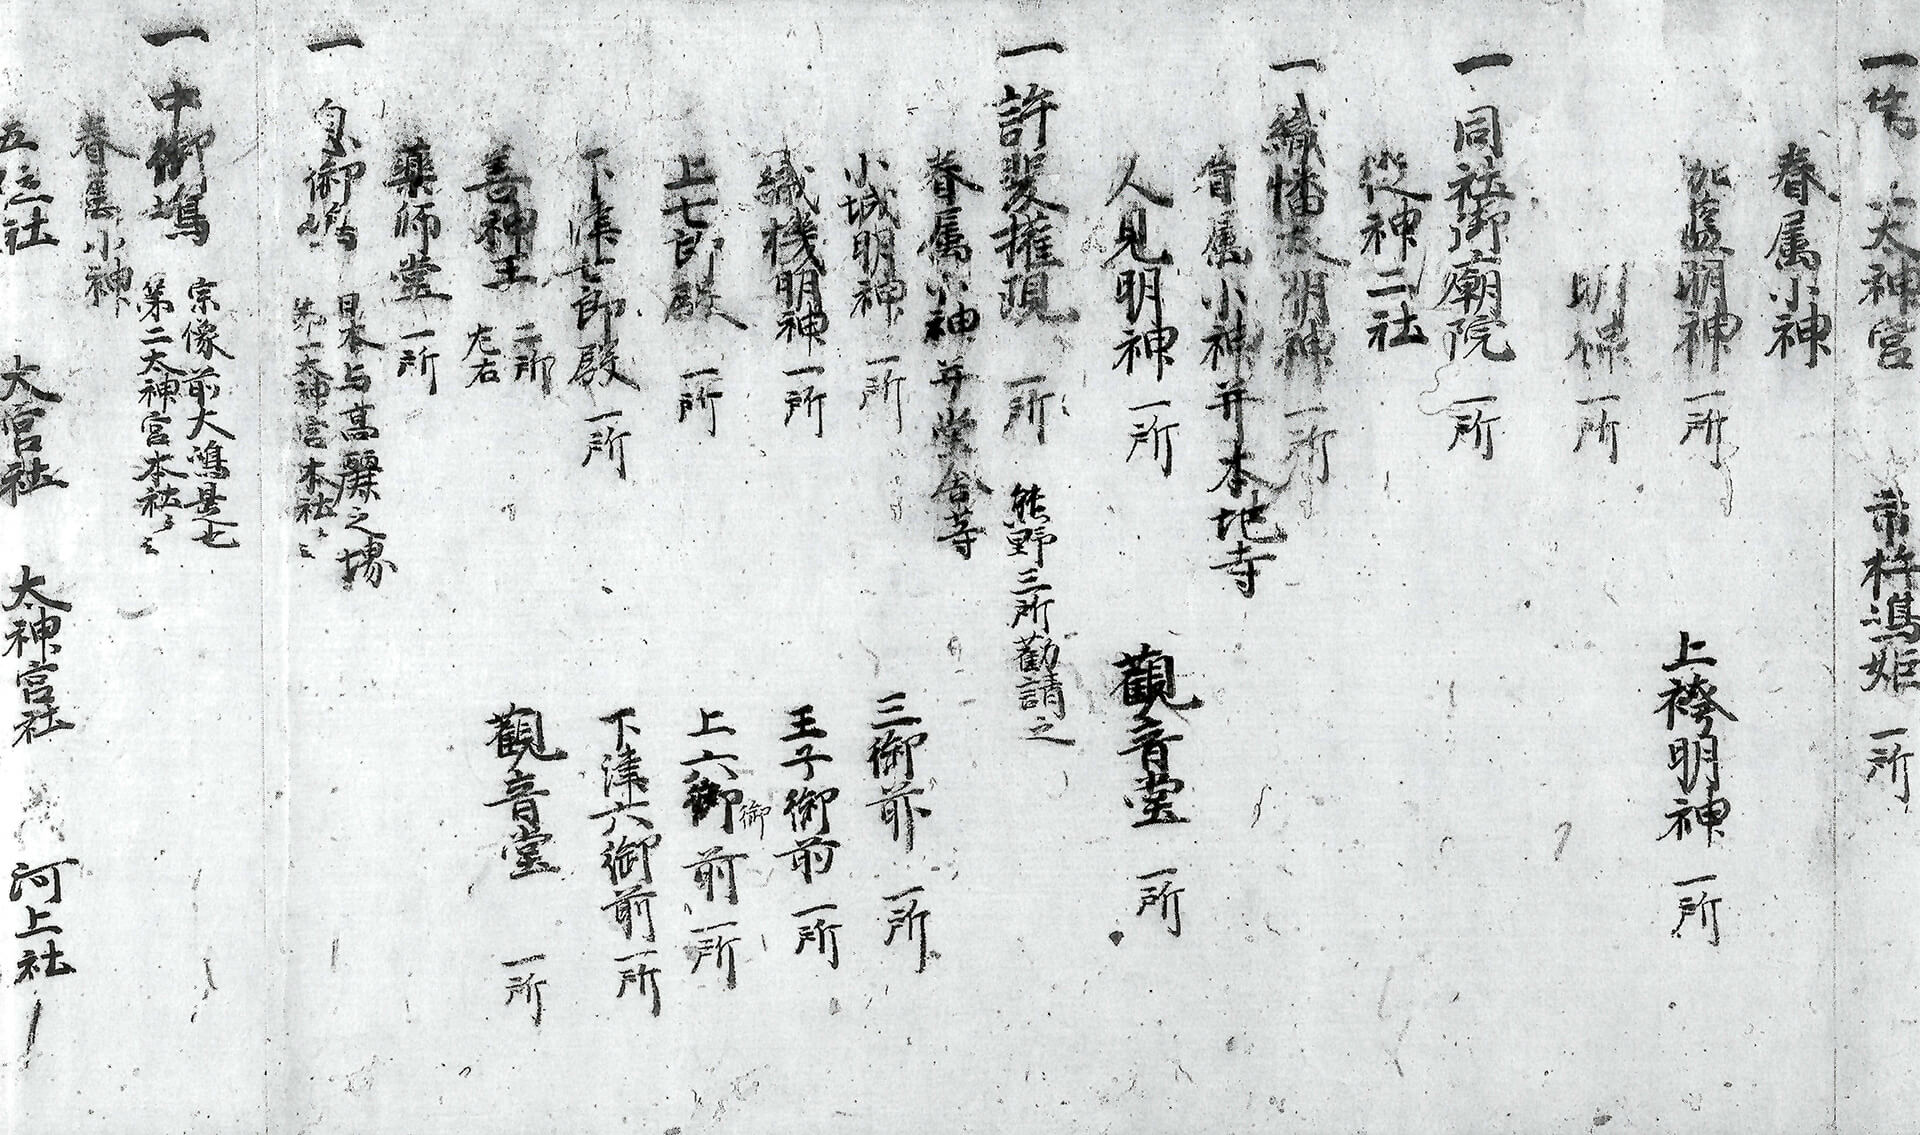 一 大神宮 市杵嶋姫 一所
眷属小神
蘆明神 一所 上袴明神 一所
明神 一所
一同社御廟院 一所
従神二社
一織幡大明神 一所
眷属小神并本地寺
人見明神 一所 觀音堂 一所
一許斐権現 一所 熊野三所勧請之
眷属小神并堂舎等
小城明神 一所 三御前 一所
織機明神 一所 王子御前 一所
上七郎殿 一所 上六御前 一所
御
下津七郎殿 一所 下津六御前 一所
善神王 二所 左右 觀音堂 一所
薬師堂 一所
一息御嶋 日本与高麗之堺
第一大神宮本社云々
一中御嶋 宗像前大嶋是也
第二大神宮本社云々
眷属小神
五位社 大宮社 大神宮社 河上社